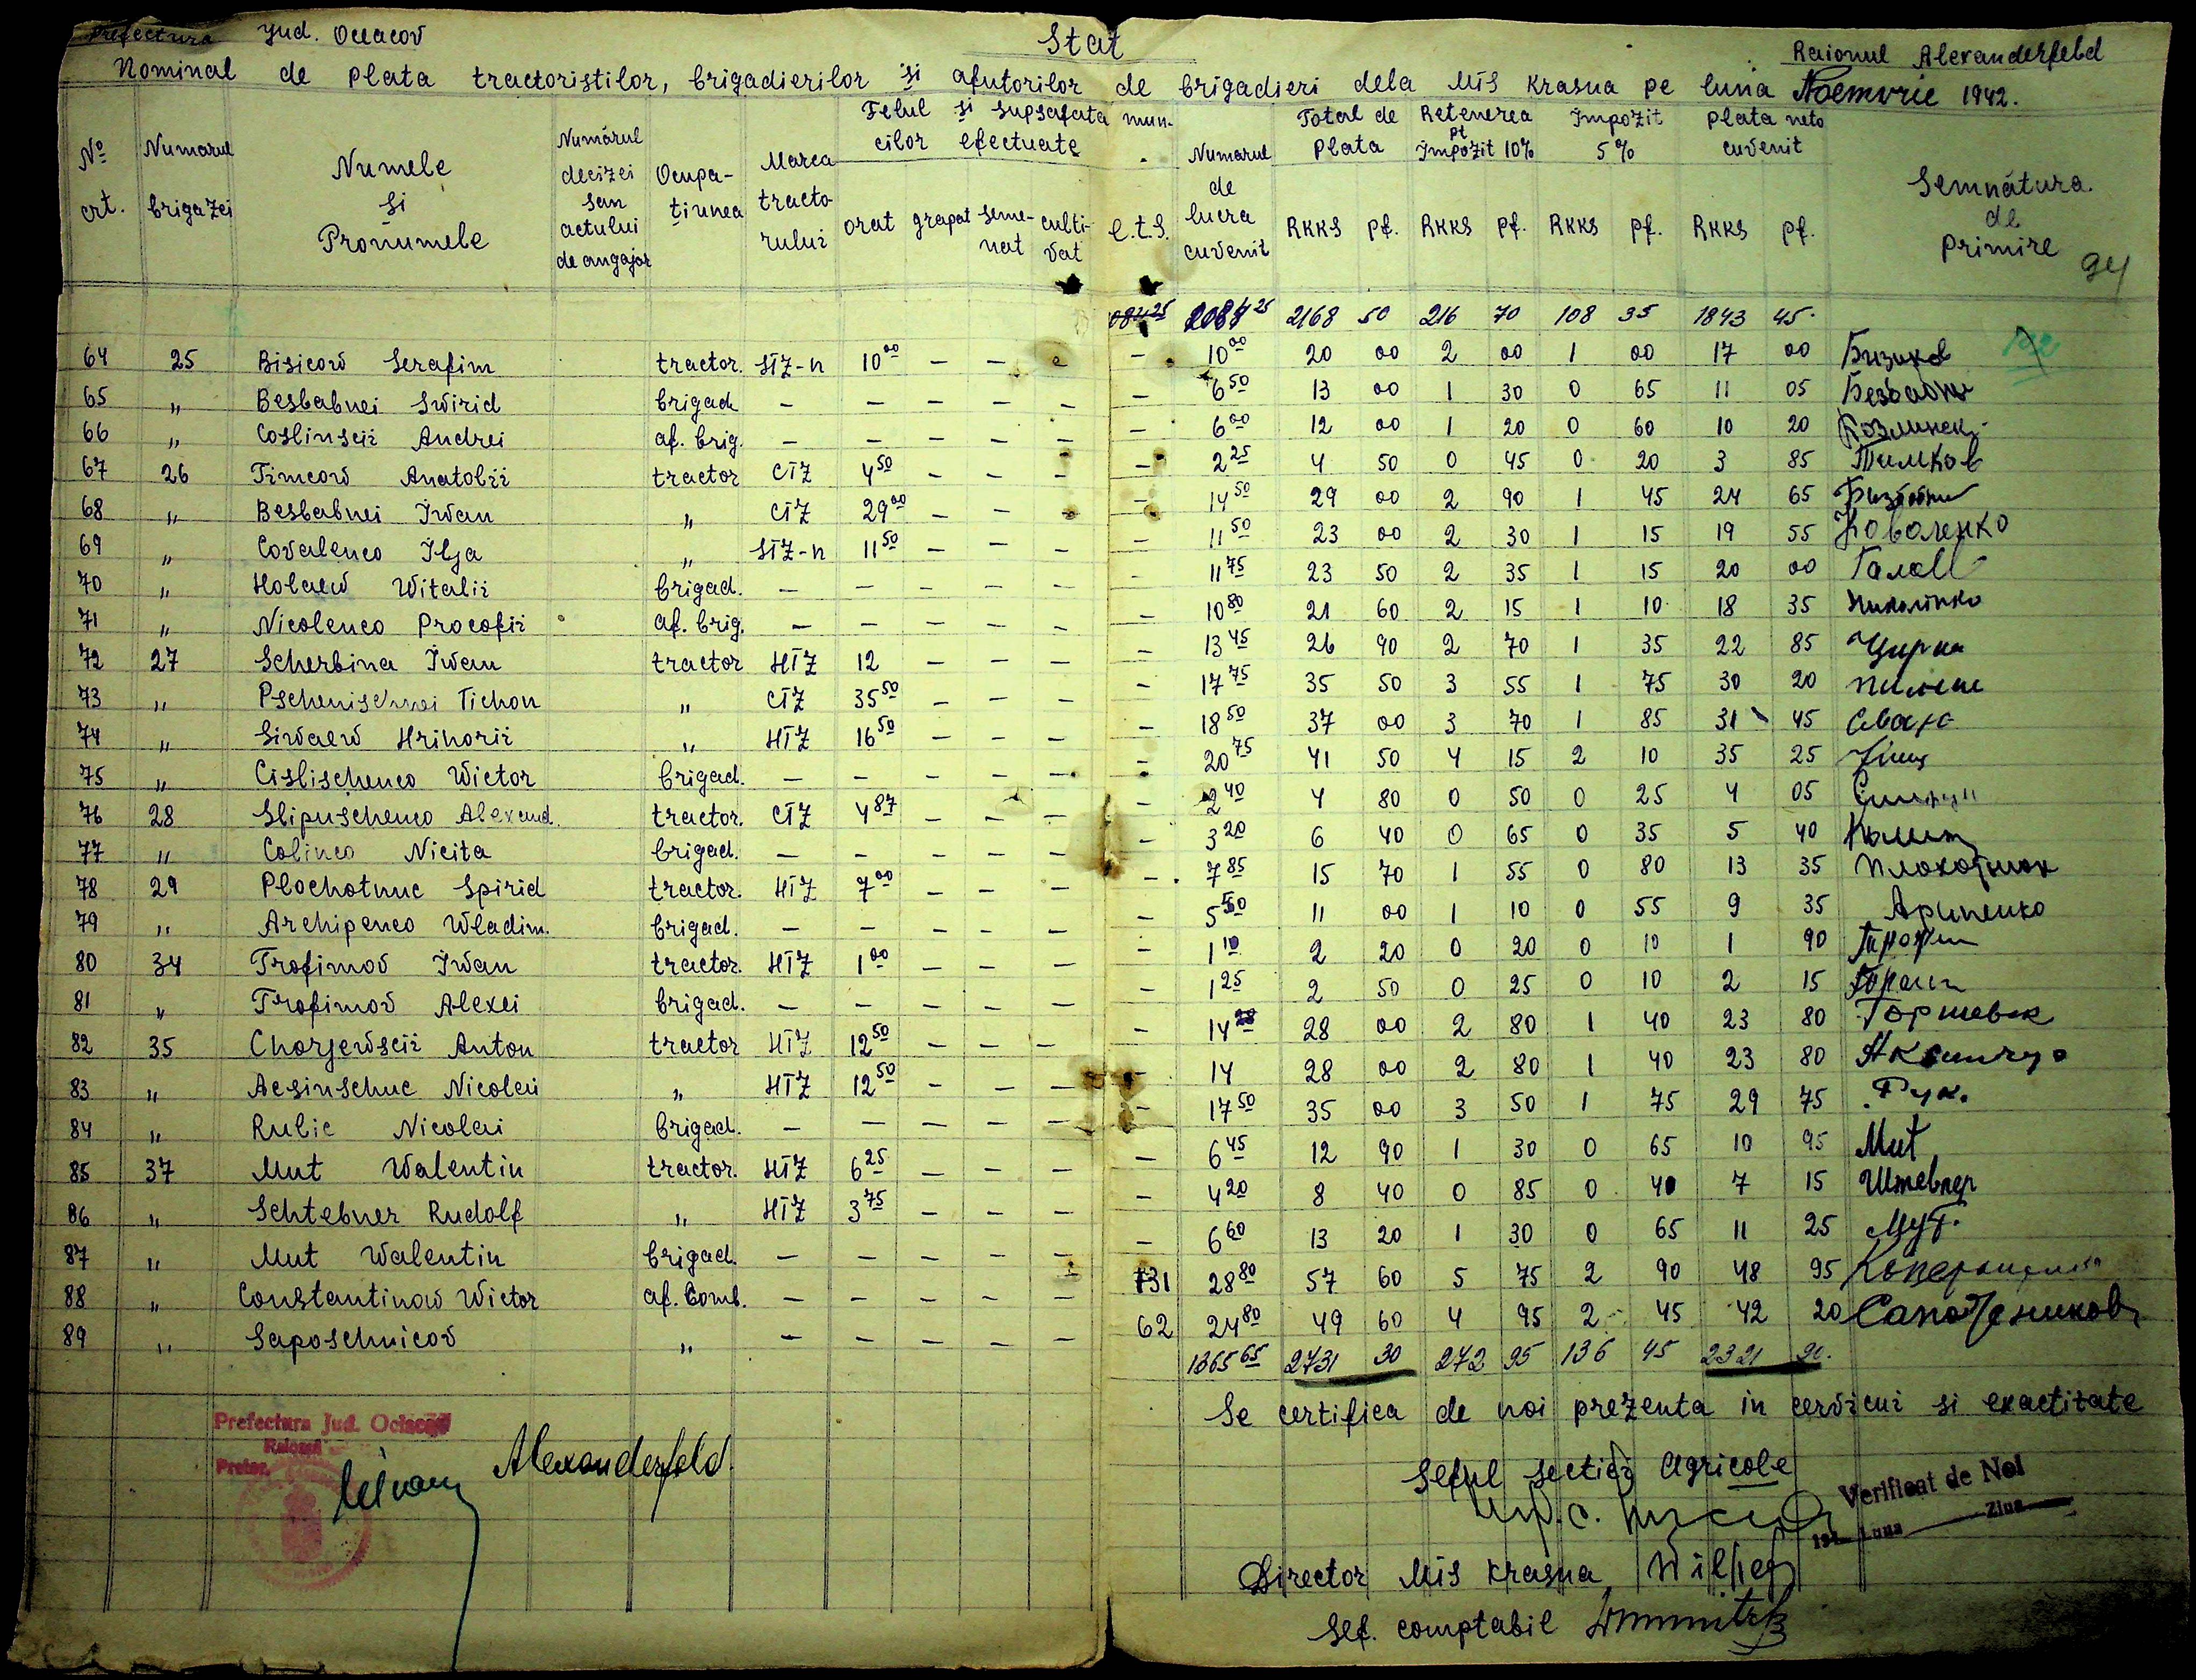 Prefectura Jud. Oceacov Stat Raionul Alexanderfeld
Nominal de plata tractoristilor, brigadierilor si afutorilor de brigadieri dela Mis Krasna pe luna Noemvrie 1942.
№ crt. Numarul brigazei Numele si Pronumele Numărul decizei sau actului de angajar Ocupa-tiunea Marca tracto-rului Felul si supsafata mun-cilor efectuate orat grapat seme-nat culti-vat e.t.s. Numarul de lucra cuvenit Total de plata RKKS pf. Retenerea pt Impozit 10% RKKS pf. Impozit 5% RKKS pf. plata neto cuvenit RKKS pf. Semnătura de primire
94
2084 25 2168 50 216 70 108 35 1843 45
64 25 Bisicow Serafim tractor. STZ-n 10 00 — — — 10 00 20 00 2 00 1 00 17 00 Бизиков
65 " Besbabnei Swirid brigad — — — — — — 6 50 13 00 1 30 0 65 11 05 Безбабни
66 " Coslinscii Andrei af. brig. — — — — — — 6 00 12 00 1 20 0 60 10 20 Козлинск
67 26 Timcow Anatolii tractor CTZ 4 50 — — — — 2 25 4 50 0 45 0 20 3 85 Тимков
68 " Besbabnei Iwan " CTZ 29 00 — — — 14 50 29 00 2 90 1 45 24 65
69 " Covalenco Ilja " STZ-n 11 50 — — — — 11 50 23 00 2 30 1 15 19 55 Коваленко
70 " Holaew Witalii brigad. — — — — — — 11 75 23 50 2 35 1 15 20 00
71 " Nicolenco Procofii af. brig. — — — — — — 10 80 21 60 2 15 1 10 18 35
72 27 Scherbina Iwan tractor HTZ 12 — — — — 13 45 26 90 2 70 1 35 22 85
73 " Pschenischnoi Tichon " CTZ 35 50 — — — — 17 75 35 50 3 55 1 75 30 20
74 " Siwaew Hrihorii " HTZ 16 50 — — — — 18 50 37 00 3 70 1 85 31 45
75 " Cislischenco Wictor brigad. — — — — — — 20 75 41 50 4 15 2 10 35 25
76 28 Slipuschenco Alexand. tractor. CTZ 4 87 — — — — 2 40 4 80 0 50 0 25 4 05
77 " Colinco Nicita brigad. — — — — — — 3 20 6 40 0 65 0 35 5 40
78 29 Plochotnuc Spirid tractor. HTZ 7 00 — — — — 7 85 15 70 1 55 0 80 13 35 Плохотнюк
79 " Archipenco Wladim. brigad. — — — — — — 5 50 11 00 1 10 0 55 9 35 Арипенко
80 34 Trofimov Iwan tractor. HTZ 1 00 — — — — 1 10 2 20 0 20 0 10 1 90
81 " Trofimov Alexei brigad. — — — — — — 1 25 2 50 0 25 0 10 2 15
82 35 Chorjewscii Anton tractor HTZ 12 50 — — — — 14 28 00 2 80 1 40 23 80
83 " Acsinschuc Nicolai " HTZ 12 50 — — — — 14 28 00 2 80 1 40 23 80
84 " Rubic Nicolai brigad. — — — — — — 17 50 35 00 3 50 1 75 29 75
85 37 Mut Walentin tractor. HTZ 6 25 — — — — 6 45 12 90 1 30 0 65 10 95 Mut
86 " Schtebner Rudolf " HTZ 3 75 — — — — 4 20 8 40 0 85 0 40 7 15 Штевнер
87 " Mut Walentin brigad. — — — — — — 6 60 13 20 1 30 0 65 11 25 Мут.
88 " Constantinow Wictor af. Comb. — — — — — 731 28 80 57 60 5 75 2 90 48 95
89 " Saposchnicov " — — — — — 62 24 80 49 60 4 95 2 45 42 20 Сапожников
1365 65 2731 30 272 95 136 45 2321 90.
Se certifica de noi prezenta in cervicui si exactitate
Prefectura Jud. Oceacov
Raionul
Pretor.
Alexanderfeld.
Seful sectiei Agricole
Verificat de Noi
194 Luna Ziua
Director Mis Krasna
Sef. comptabil